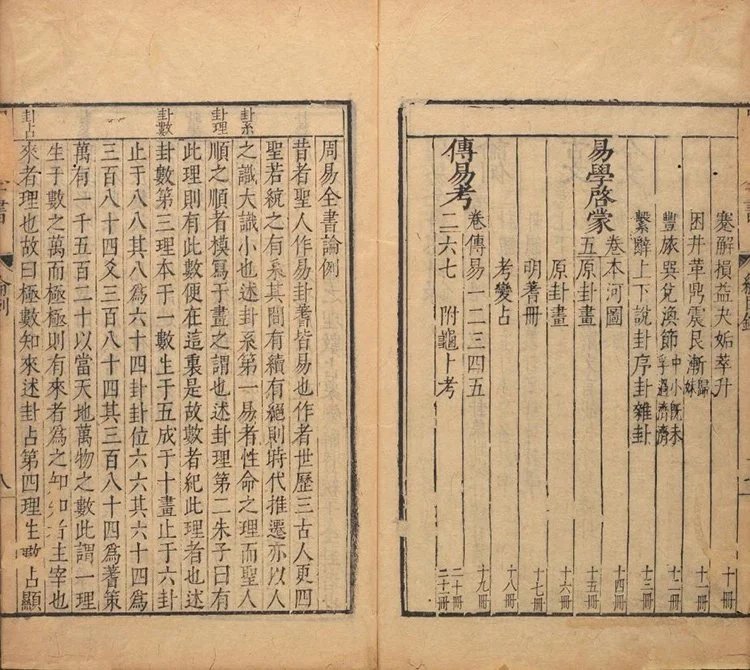 蹇解損益夬姤萃升 十冊
困井革鼎震艮漸歸妹 十一冊
豐旅巽兌渙節中孚小過既濟未濟 十二冊
繫辭上下說卦序卦雜卦 十三冊
易學啓蒙
卷本河圖 十四冊
五原卦畫 十五冊
原卦畫 十六冊
明蓍冊 十七冊
考變占 十八冊
傳易考
卷傳易一二三四五 十九冊
二六七 附龜卜考 二十冊
周易全書論例
昔者聖人作易卦蓍皆易也作者世歷三古人更四
聖若統之有系其間有續有絕則時代推遷亦以人
卦系
之識大識小也述卦系第一易者性命之理而聖人
卦理
順之順者模寫于畫之謂也述卦理第二朱子曰有
此理則有此數便在這裏是故數者紀此理者也述
卦數
卦數第三理本于一數生于五成于十畫止于六卦
止于八八其八爲六十四卦卦位六六其六十四爲
三百八十四爻三百八十四其三百八十四爲蓍策
萬有一千五百二十以當天地萬物之數此謂一理
生于數之萬而極極則有來者爲之知知者主宰也
卦占
來者理也故曰極數知來述卦占第四理生數占顯